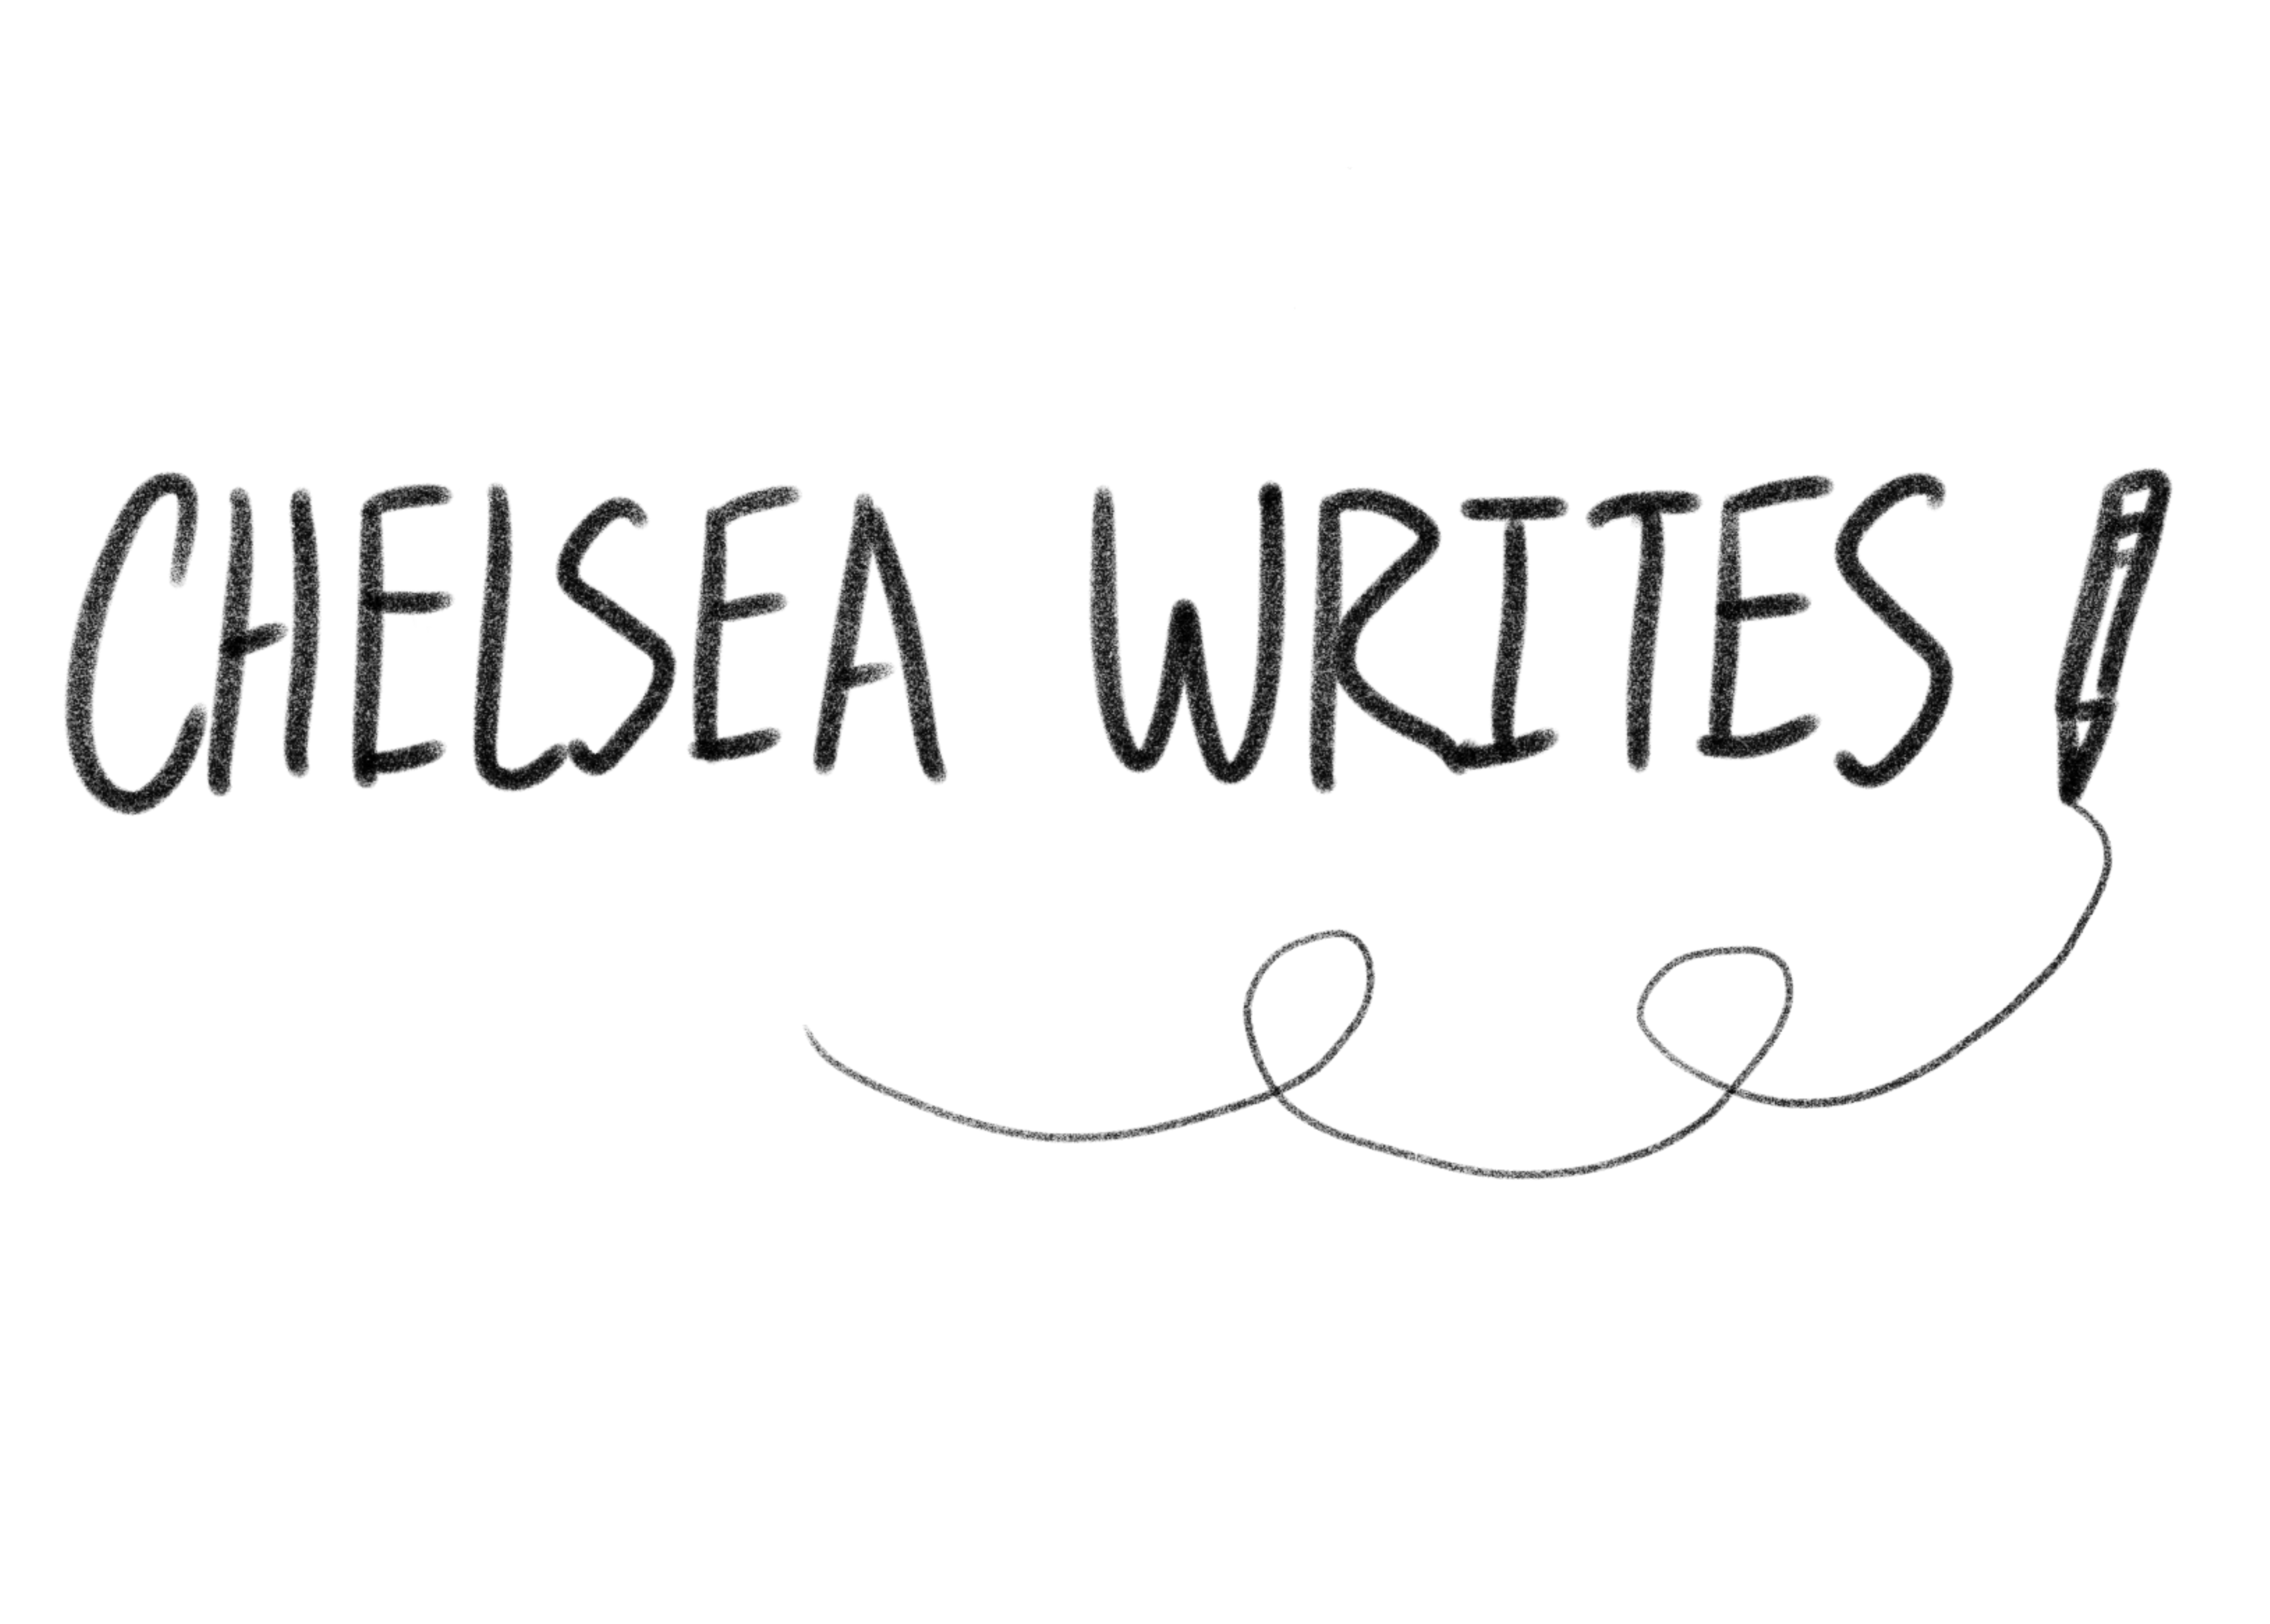 CHELSEA WRITES